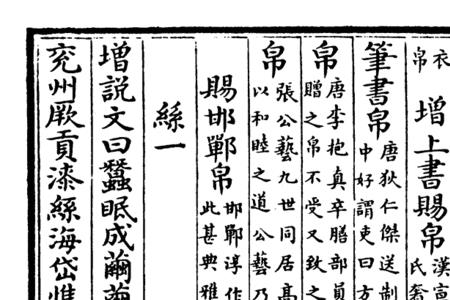 衣
帛
增上書賜帛
漢宣
氏
筆書帛
唐狄仁傑送制
中好謂吏曰方
帛
唐李抱真卒膳部員
贈之帛不受又致之
帛
張公藝九世同居高
以和睦之道公藝乃
賜邯鄲帛
邯鄲淳作
此甚典雅
絲一
增説文曰蠶眠成繭
兖州厥貢漆絲海岱惟